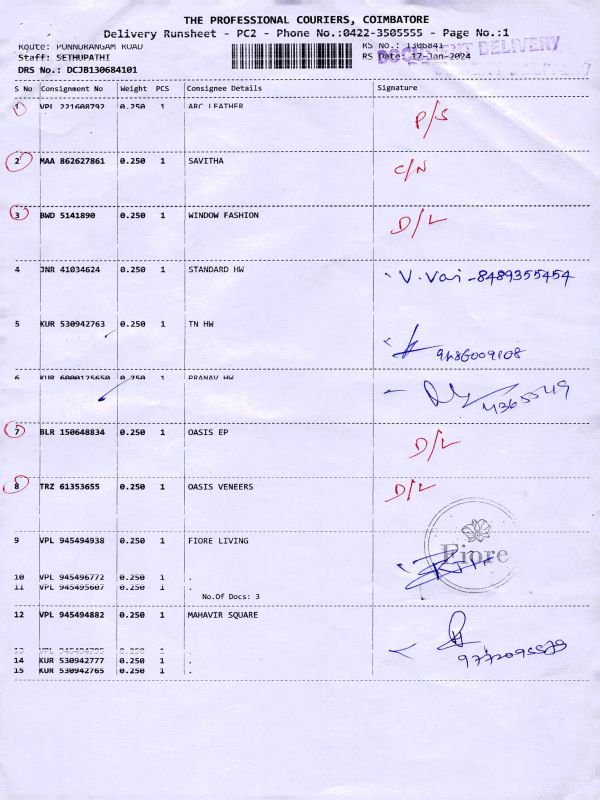 THE PROFESSIONAL COURIERS, COIMBATORE
Delivery Runsheet - PC2 - Phone No.:0422-3505555 - Page No.:1
Route: PONNURANGAM ROAD RS No.: 1306841
Staff: SETHUPATHI RS Date: 17-Jan-2024 DOCUMENT DELIVERY
DRS No.: DCJB130684101
S No Consignment No Weight PCS Consignee Details Signature
1 VPL 221608792 0.250 1 ARC LEATHER P/S
2 MAA 862627861 0.250 1 SAVITHA C/N
3 BWD 5141890 0.250 1 WINDOW FASHION D/L
4 JNR 41034624 0.250 1 STANDARD HW V. Vai - 8489355454
5 KUR 530942763 0.250 1 TN HW
9486009108
6 KUR 6000125650 0.250 1 PRANAV HW
7 BLR 150648834 0.250 1 OASIS EP D/L
8 TRZ 61353655 0.250 1 OASIS VENEERS D/L
9 VPL 945494938 0.250 1 FIORE LIVING Fiore
10 VPL 945496772 0.250 1 .
11 VPL 945495607 0.250 1 .
No.Of Docs: 3
12 VPL 945494882 0.250 1 MAHAVIR SQUARE
13 VPL 0.250 1 .
14 KUR 530942777 0.250 1 .
15 KUR 530942765 0.250 1 .